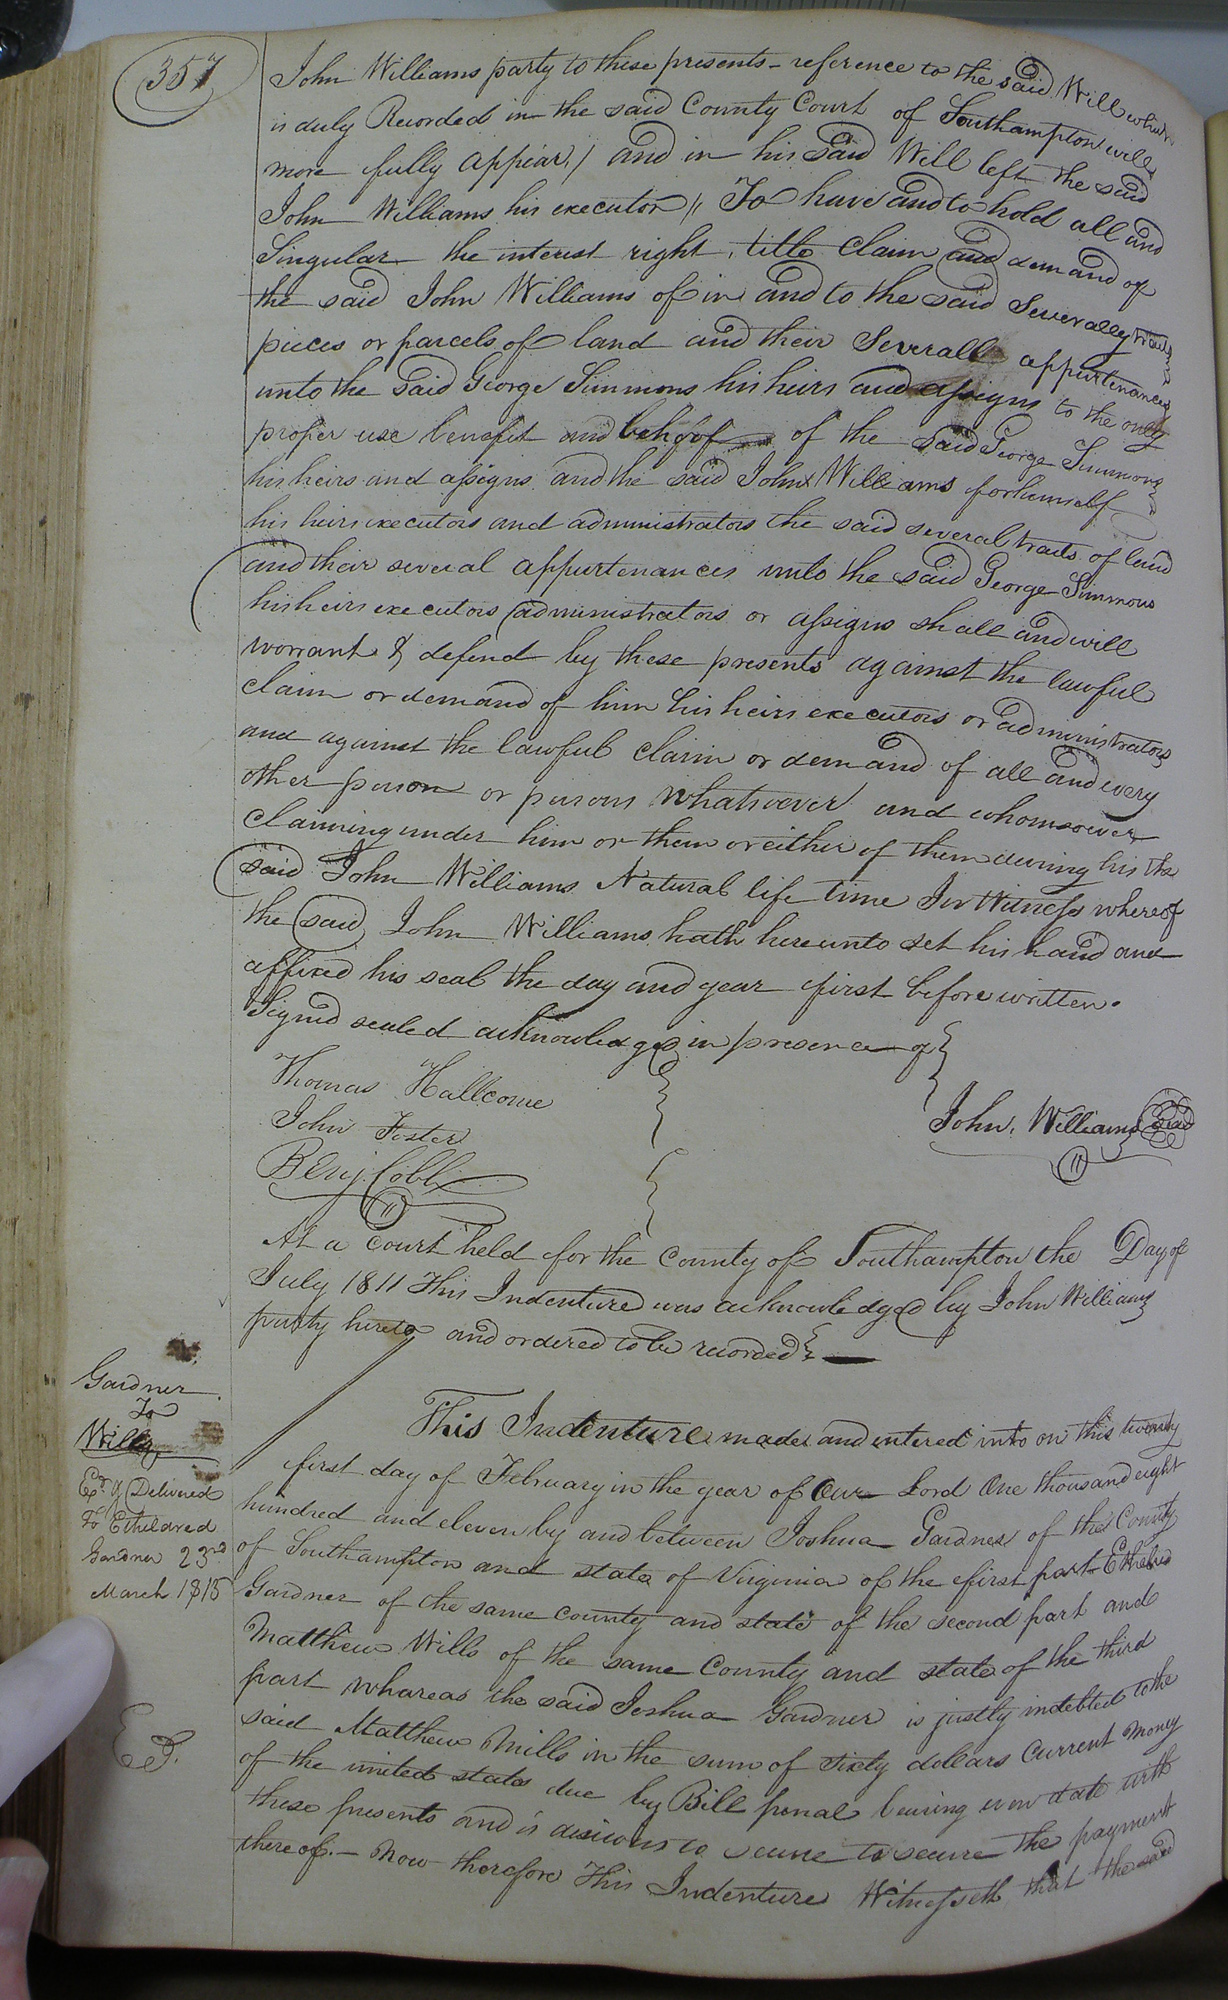 357
John Williams party to these presents - reference to the said Will which
is duly Recorded in the said County Court of Southampton will
more fully appear,) and in his said Will left the said
John Williams his executor,, To have and to hold all and
Singular the interest right, title claim and demand of
the said John Williams of in and to the said Severally tracts
pieces or parcels of land and their Severall appurtenances
unto the said George Simmons his heirs and assigns to the only
proper use benefit and behoof of the said George Simmons
his heirs and assigns and the said John Williams for himself
his heirs executors and administrators the said several tracts of land
and their several appurtenances unto the said George Simmons
his heirs executors administrators or assigns shall and will
worrant & defend by these presents against the lawful
claim or demand of him his heirs executors or administrators
and against the lawful claim or demand of all and every
other person or persons whatsoever and whomsoever
claiming under him or them or either of them during his the
said John Williams Natural life time In Witness whereof
the said John Williams hath hereunto set his hand and
affixed his seal the day and year first before written.
Signed sealed acknowledged in presence of
Thomas Hallcome
John Foster
Benj Cobb
John Williams Seal
At a Court held for the County of Southampton the Day of
July 1811 This Indenture was acknowledged by John Williams
party hereto and ordered to be recorded
Gardner
To
Wills
Exd & Delivered
to Etheldred
Gardner 23rd
March 1815
This Indenture made and entered into on this twenty
first day of February in the year of Our Lord One thousand eight
hundred and eleven by and between Joshua Gardner of the County
of Southampton and state of Virginia of the first part Ethelred
Gardner of the same county and state of the second part and
Matthew Wills of the same County and state of the third
part whareas the said Joshua Gardner is justly indebted to the
said Matthew Mills in the sum of sixty dollars Current money
of the united states due by Bill penal bearing even date with
these presents and is desirous to secure to secure the payment
thereof. - Now therefore This Indenture Witnesseth that the said